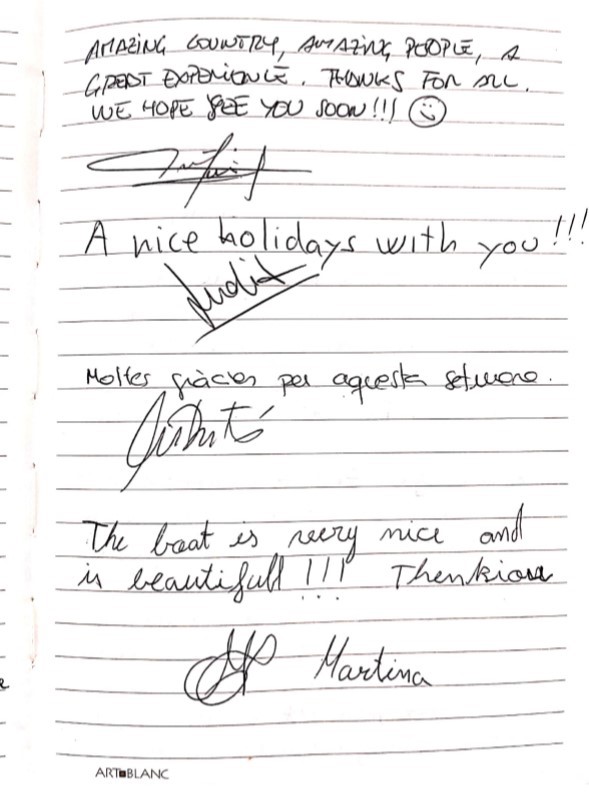 AMAZING COUNTRY, AMAZING PEOPLE, A
GREAT EXPERIENCE. THANKS FOR ALL.
WE HOPE SEE YOU SOON!!!
A nice holidays with you!!!
Judit
Moltes gràcies per aquesta setmana.
The boat is veery nice and
is beautifull !!! Thenkiou
Martina
ART■BLANC